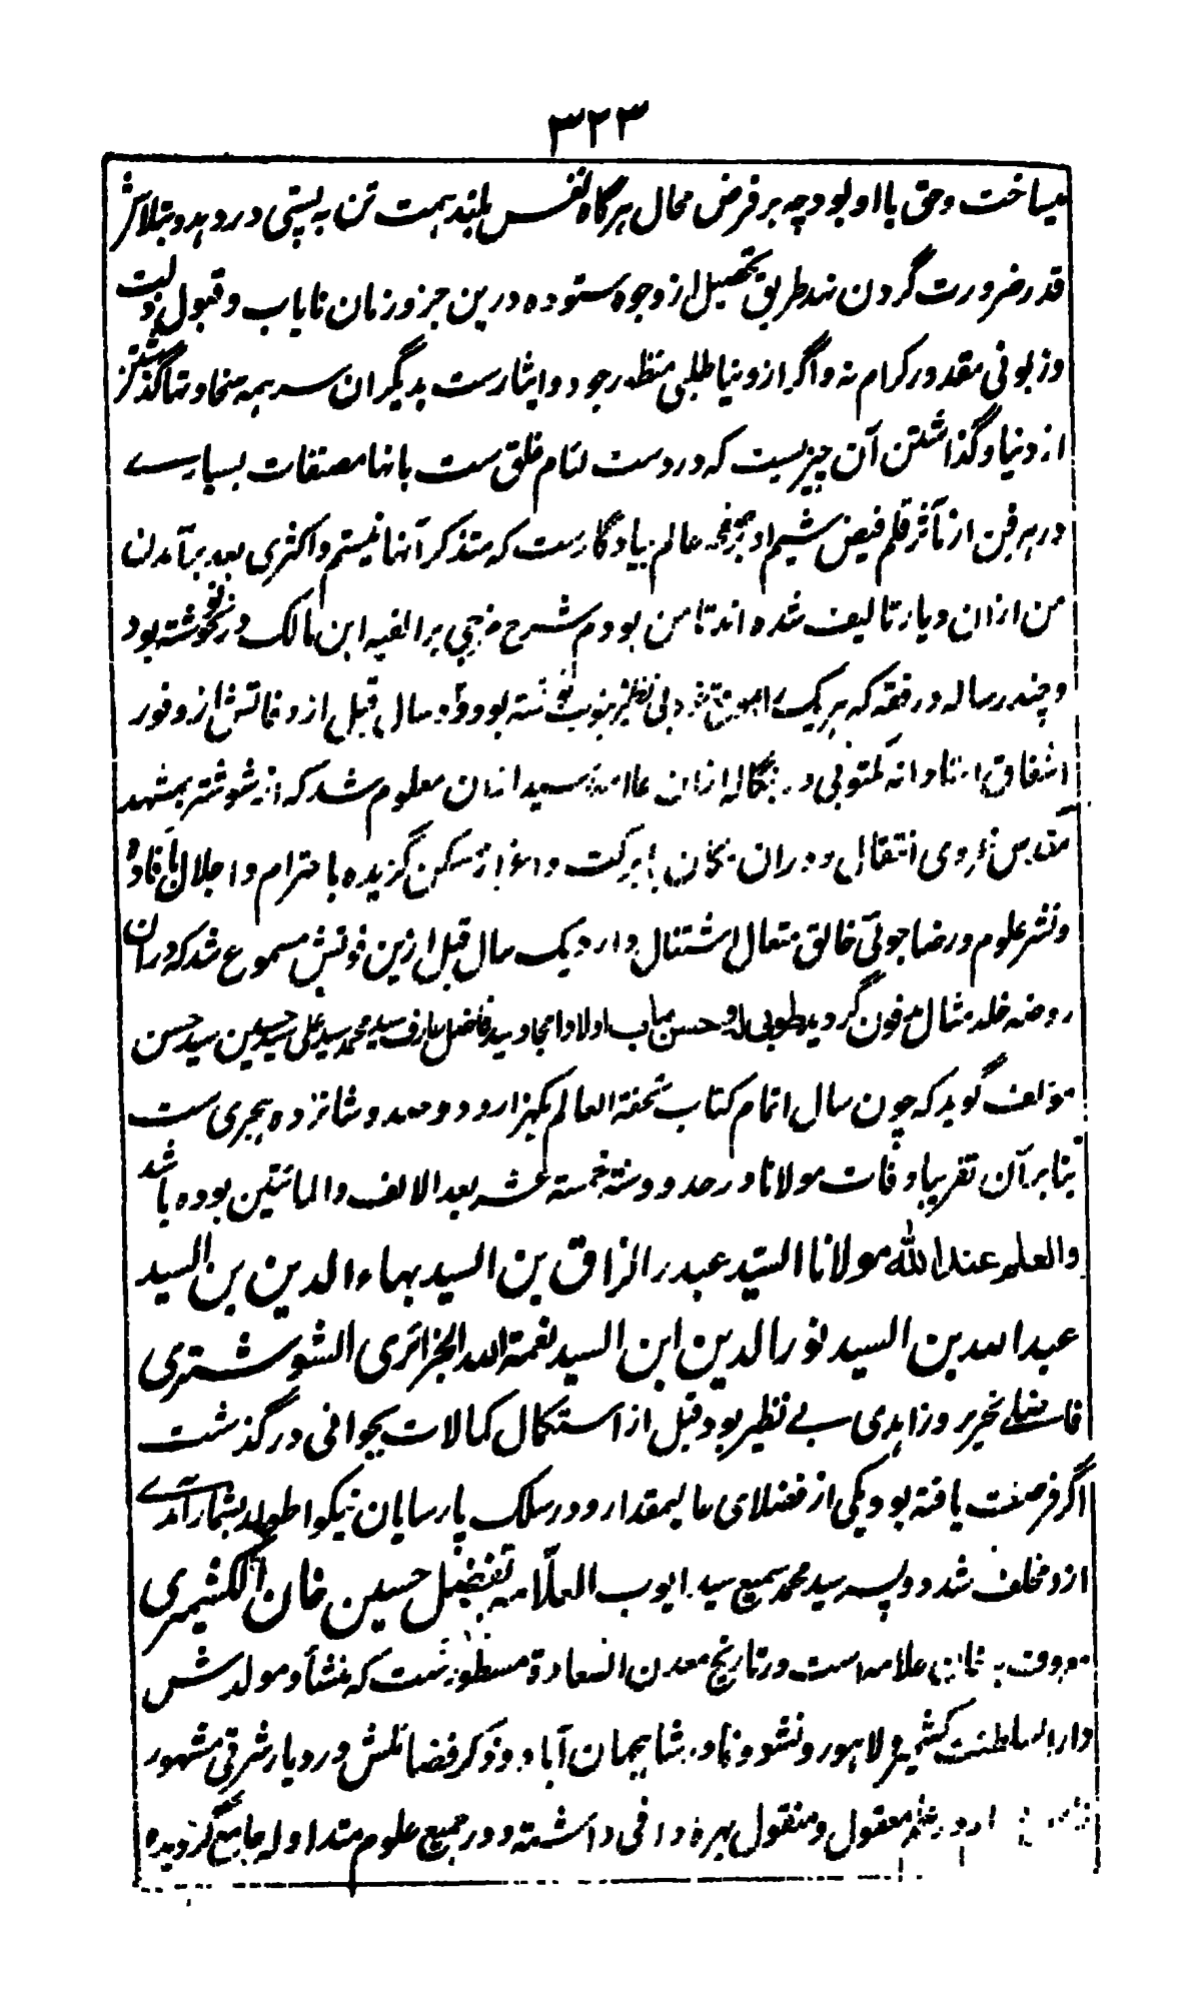 ۳۲۳
میساخت و حق با او بود چه بر فرض محال هرگاه نفس بلند همت تن به پستی در دهد و بتلاش
قدر ضرورت گردن نهد طریق تحصیل از وجوه ستوده درین جزو زمان نایاب و قبول ذلت
و زبونی مقدور کرام نه و اگر از دنیا طلبی منظور جود و ایثارست بدیگران سر همه سخاوتها گذشتن
از دنیا و گذاشتن آن چیزیست که در دست لئام خلق ست بانها مصنفات بسیارے
در هر فن از مآثر قلم فیض شیم او بر صفحه عالم بیادگارست که متذکر آنها نیستم و اکثری بعد برآمدن
من ازان دیار تالیف شده اند تا من بودم شرح مزجی بر الفیه ابن مالک در نحو نوشته بود
و چند رساله در فقه که هریک بی نظیر بود و دو سال قبل از وفاتش از وفور
اشفاق استادانه مکتوبی در بنگاله ازان علامه رسید ازان معلوم شد که از شوشتر بمشهد
مقدس رضوی انتقال و دران مکان با برکت و اعزاز سکنی گزیده با احترام و اجلال بافاده
و نشر علوم و رضاجوئی خالق متعال اشتغال دارد یک سال قبل ازین فوتش مسموع شد که دران
روضه خلد مثال مدفون گردید طوبی له و حسن مآب اولاد امجاد سید فاضل عارف سید محمد سید علی سید حسین سید حسن
مؤلف گوید که چون سال اتمام کتاب تحفة العالم یکهزار و دو صد و شانزده هجری ست
بنابر آن تقریبا وفات مولانا در حدود سنة خمسة عشر بعد الالف و المائتین بوده باشد
والعلم عند الله مولانا السید عبد الرزاق بن السید بهاء الدین بن السید
عبد الله بن السید نور الدین ابن السید نعمة الله الجزائری الشوشتری
فاضلے نحریر و زاهدی بے نظیر بود قبل از استکمال کمالات بجوانی در گذشت
اگر فرصت یافته بود یکی از فضلای عالیمقدار و در سلک پارسایان نیکو اطوار بشمار آمدے
ازو مخلف شد دو پسر سید محمد سمیع سید ایوب العلامه تفضل حسین خان الکشمیری
معروف به خان علامه است در تاریخ معدن السعادة مسطورست که منشأ و مولدش
دار السلطنت کشمیر و لاهور و نشو و نما در شاهجهان آباد و ذکر فضائلش در دیار شرقی مشهور
در علم معقول و منقول بهرهٔ وافی داشته و در جمیع علوم متداوله جامع گردیده